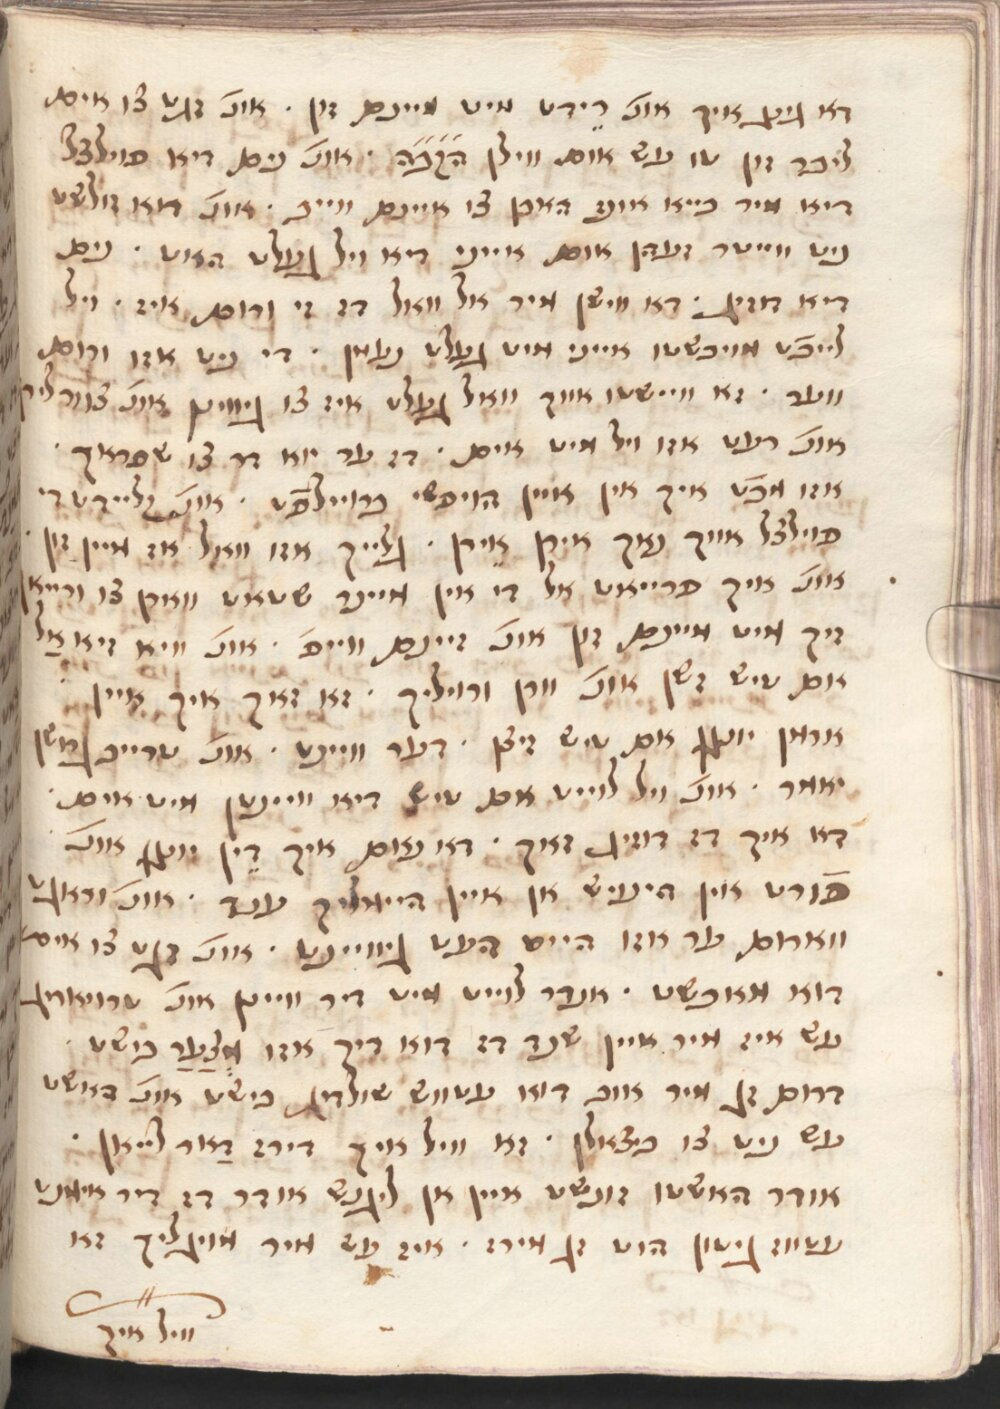 דא גינג איך אונ' רידט מיט מיינם זון . אונ' זגט צו אים
ליבר זון טו עש אום ווילן הקב"ה . אונ' נים דיא
דיא מיר בייא איינ' האט צו איינם ווייב . אונ' דוא זולשט
ניט ווייטר זעהן אום איינ' דיא ויל געלט האט . נים
דיא דוזיג . דא ווישן מיר אל וואל דז זי ורום איז . ויל
לייכט מויכשטו איינ' מיט געלט נעמן . די ניט אזו ורום
ווער . זא ווייששטו אוך וואל געלט איז צו גיווינן אונ' צוורלירן
אונ' רעט אזו ויל מיט אים . דז ער יוא דר צו שפראך .
אזו מכט איך אין איין הויפשי ברוילפט . אונ' קליידט די
אוך נאך אירן אירן . גלייך אזו וואל אז מיין זון .
אונ' איך פרייאט אל די אין מיינר שטאט ווארן צו ורייאן
זיך מיט מיינם זון אונ' זיינם ווייב . אונ' וויא זיא אל
אום טיש זשן אונ' ורן ורויליך . זא זאך איך איין
ארמן יונגן אום טיש זיצן . דער וויינט . אונ' טרייב גרושן
יאמר . אונ' ויל לוייט אם טיש דיא וויינטן מיט אים .
דא איך דז דוזיג זאך . דא נאם איך דען יונגן אונ'
פורט אין הינויש אן איין היימליך ענד . אונ' וראגט
ווארום ער אזו הייס העט גיוויינט . אונ' זגט צו אים
דוא מאכשט . אנדר לוייט מיט דיר וויינן אונ' טרויאריג
עש איז מיר איין שנד דז דוא דיך אזו מצער בישט .
דרום זג מיר אוב דוא עטוואש שולדיג בישט אונ' האשט
עש ניט צו ביצאלן . זא וויל איך דירז דאר לייאן .
אודר האשטו זונשט איין אן ליגנש אודר דז דיר אימנט
עטווז גיטון הוט זג מירז . איז עש מיר מויגליך זא
וויל איך